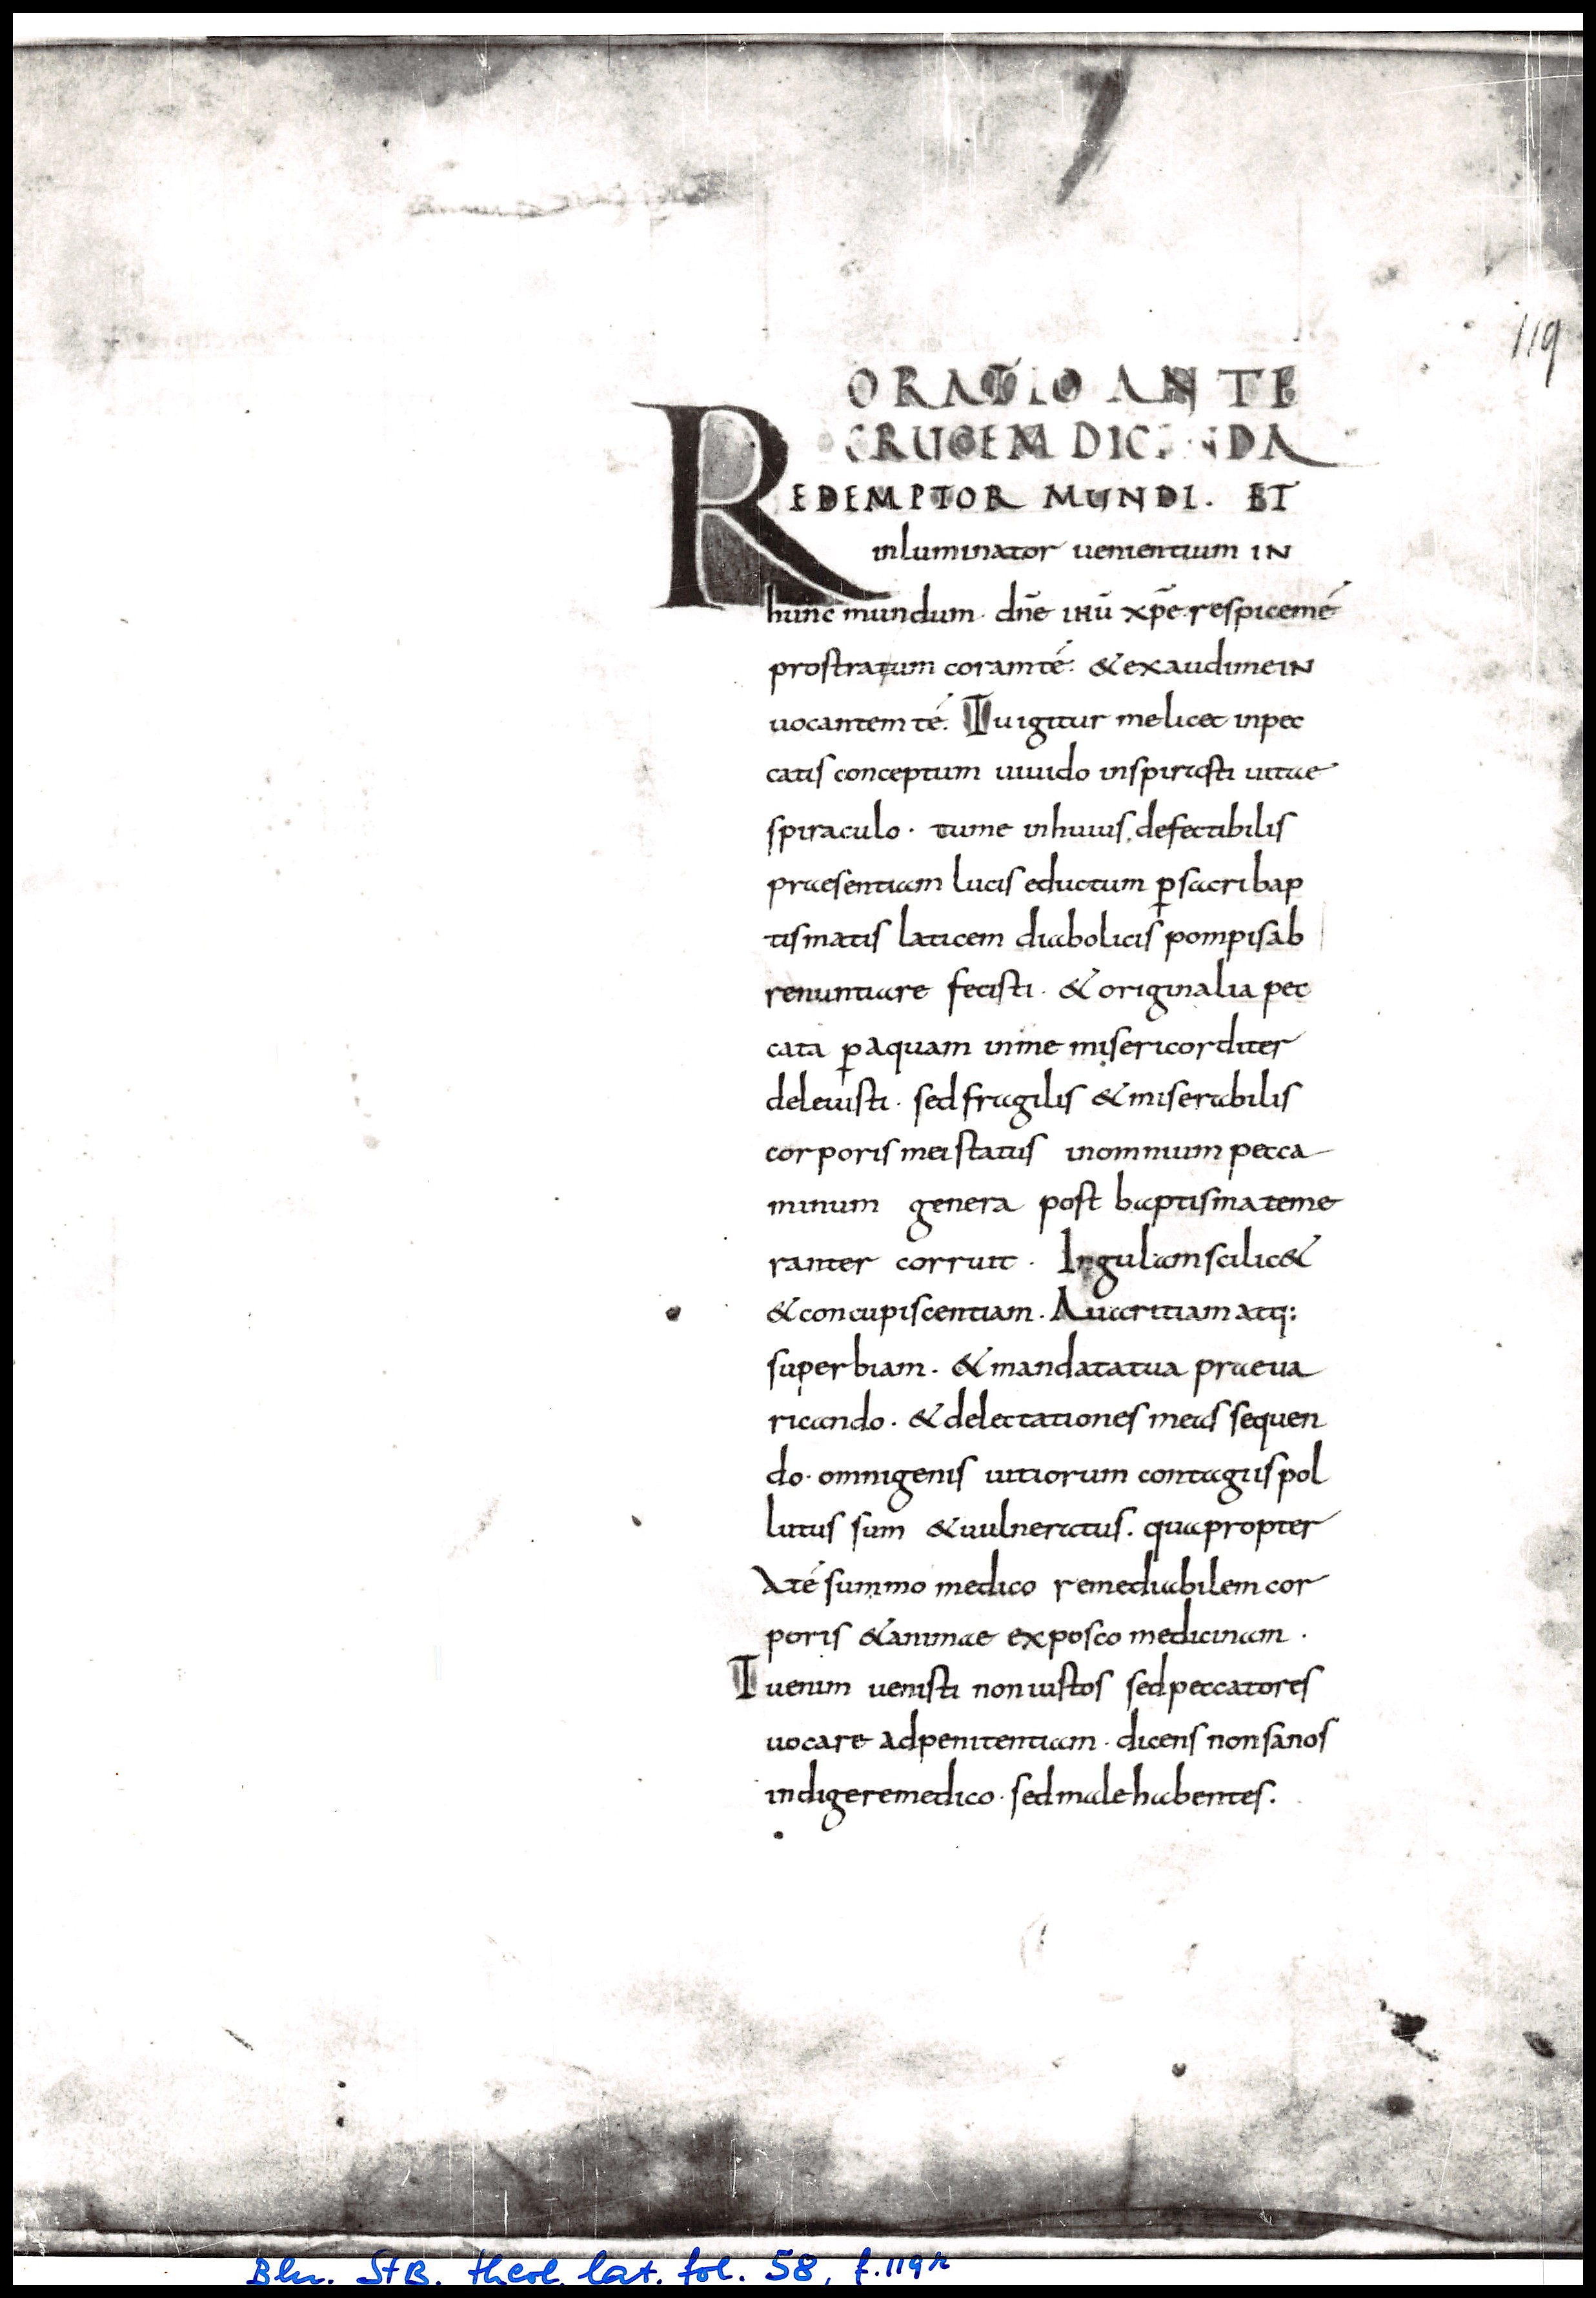 119
ORATIO ANTE
CRUCEM DICENDA
REDEMPTOR MUNDI. ET
inluminator uenientium IN
hunc mundum · dn̄e ihū xp̄e respicemé
prostratum coramté: & exaudimeIN
uocantem té. Tu igitur me licet inpec
catis conceptum uiuido inspirasti uitae
spiraculo · tume inhuius defectibilis
praesentiam lucis eductum ꝑ sacri bap
tismatis laticem diabolicis pompis ab
renuntiare fecisti · & originalia pec
cata ꝑ aquam inme misericorditer
deleuisti · sed fragilis & miserabilis
corporis mei status inomnium pecca
minum genera post baptisma teme
ranter corruit · Ingulam scilic&
& concupiscentiam. Auaritiam atq;
superbiam. & mandata tua praeua
ricando. & delectationes meas sequen
do. omnigenis uitiorum contagiis pol
lutus sum & uulneratus. quapropter
Até summo medico remediabilem cor
poris & animae exposco medicinam ·
Tu enim uenisti non iustos sed peccatores
uocare ad penitentiam · dicens non sanos
indigere medico · sed male habentes.
Bln. StB. theol. lat. fol. 58, f. 119r